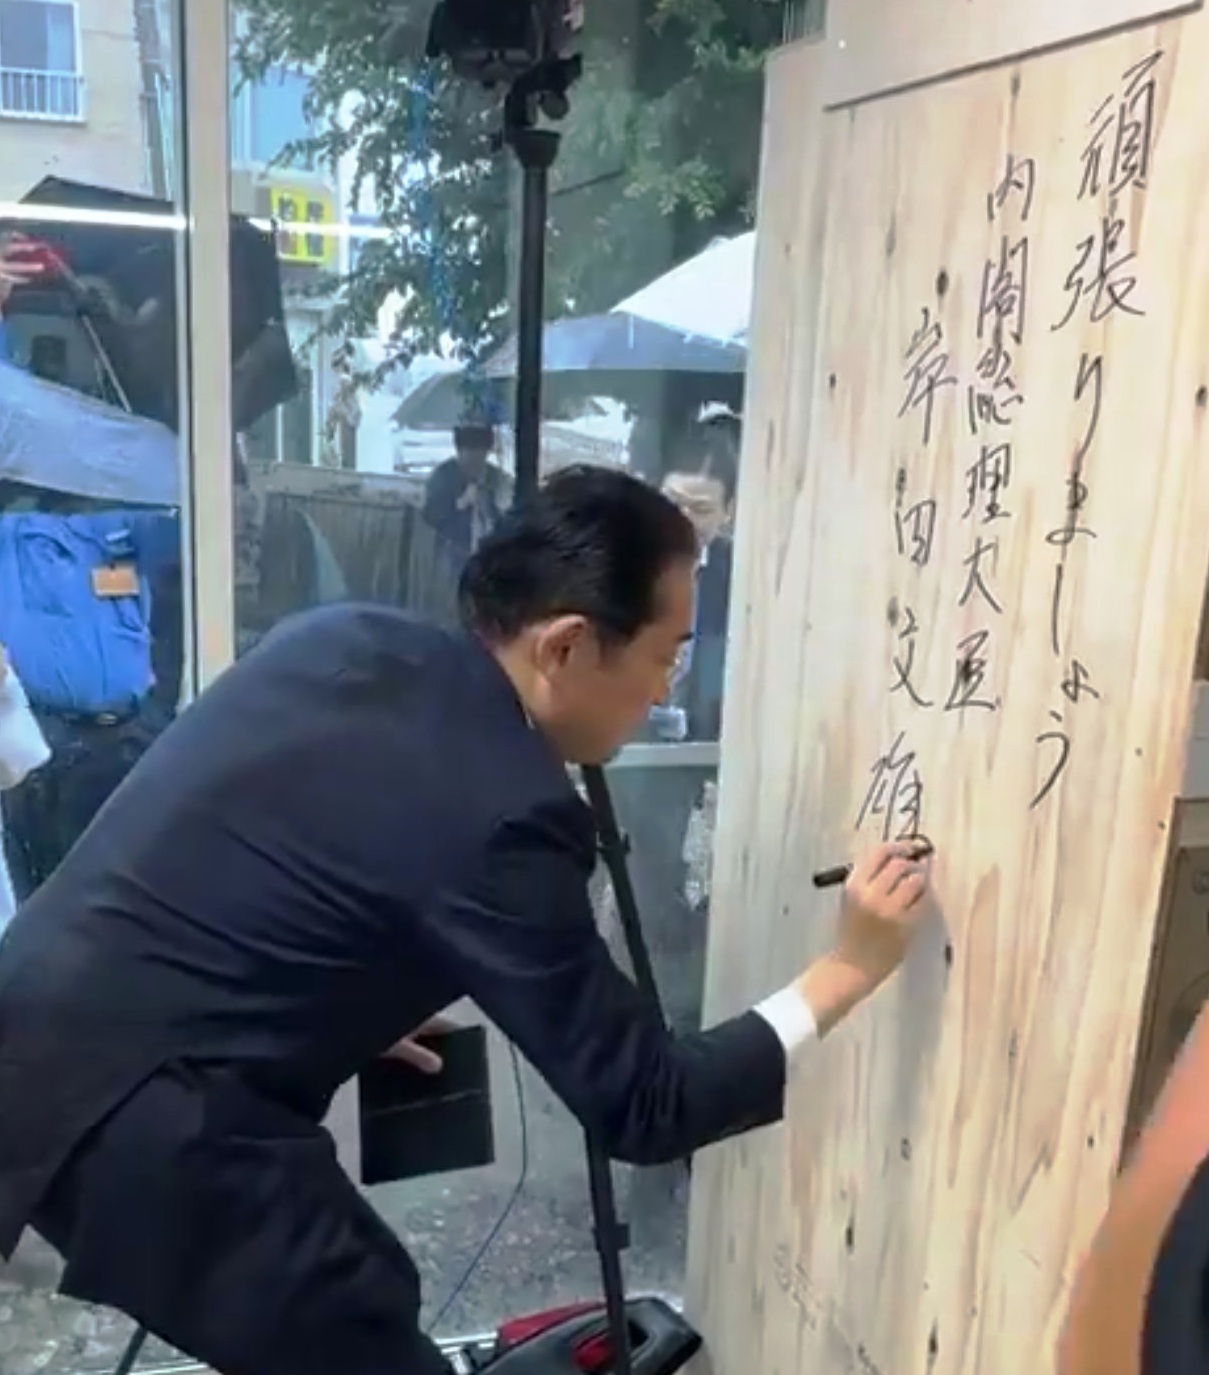 頑張りましょう
内閣総理大臣
岸田文雄